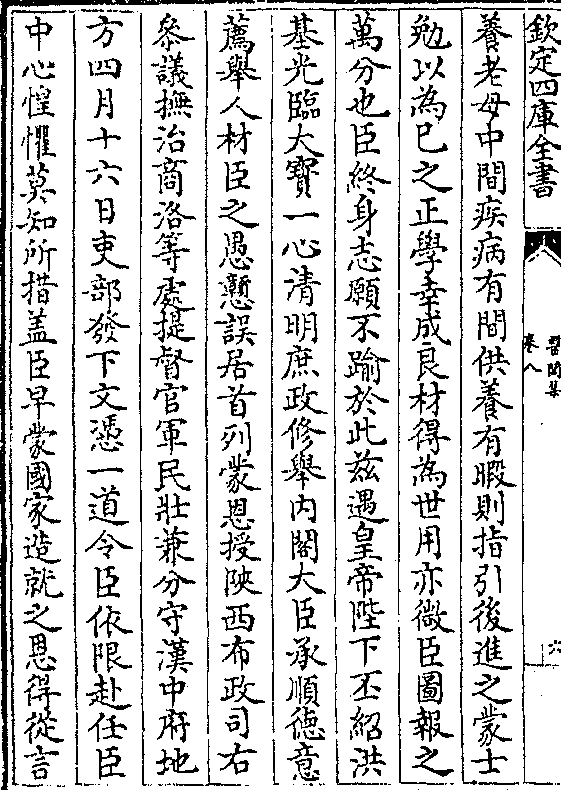 欽定四庫全書
醫閭集
卷八
六
養老母中間疾病有間供養有暇則指引後進之蒙士
勉以為已之正學幸成良材得為世用亦微臣圖報之
萬分也臣終身志願不踰於此兹遇皇帝陛下丕紹洪
基光臨大寶一心清明庶政修舉内閣大臣承順徳意
薦舉人材臣之愚戅誤居首列蒙恩授陝西布政司右
叅議撫治商洛等處提督官軍民壯兼分守漢中府地
方四月十六日吏部發下文憑一道令臣依限赴任臣
中心惶懼莫知所措盖臣早蒙國家造就之恩得從言